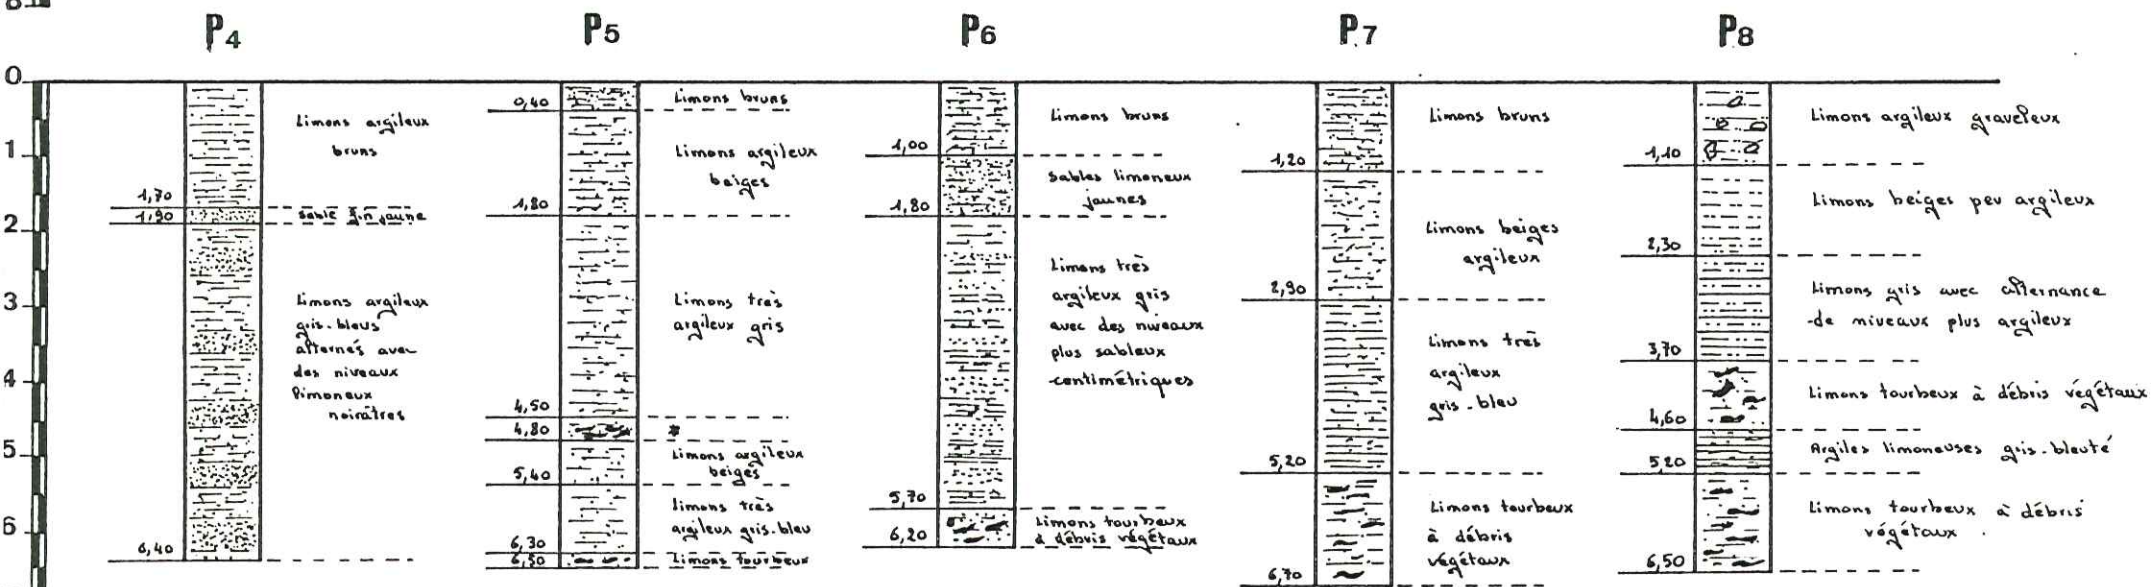 8
P4
P5
P6
P7
P8
0
1
2
3
4
5
6
Limons argileux
bruns
1,70
1,90
sable fin jaune
Limons argileux
gris-bleus
alternés avec
des niveaux
limoneux
noirâtres
6,40
0,40
Limons bruns
Limons argileux
beiges
1,80
Limons très
argileux gris
4,50
4,80
*
Limons argileux
beiges
5,40
Limons très
argileux gris-bleu
6,30
6,50
Limons tourbeux
Limons bruns
1,00
Sables limoneux
jaunes
1,80
Limons très
argileux gris
avec des niveaux
plus sableux
centimétriques
5,70
6,20
Limons tourbeux
à débris végétaux
Limons bruns
1,20
Limons beiges
argileux
2,90
Limons très
argileux
gris-bleu
5,20
Limons tourbeux
à débris
végétaux
6,70
Limons argileux graveleux
1,10
Limons beiges peu argileux
2,30
Limons gris avec alternance
de niveaux plus argileux
3,70
Limons tourbeux à débris végétaux
4,60
Argiles limoneuses gris-bleuté
5,20
Limons tourbeux à débris
végétaux
6,50